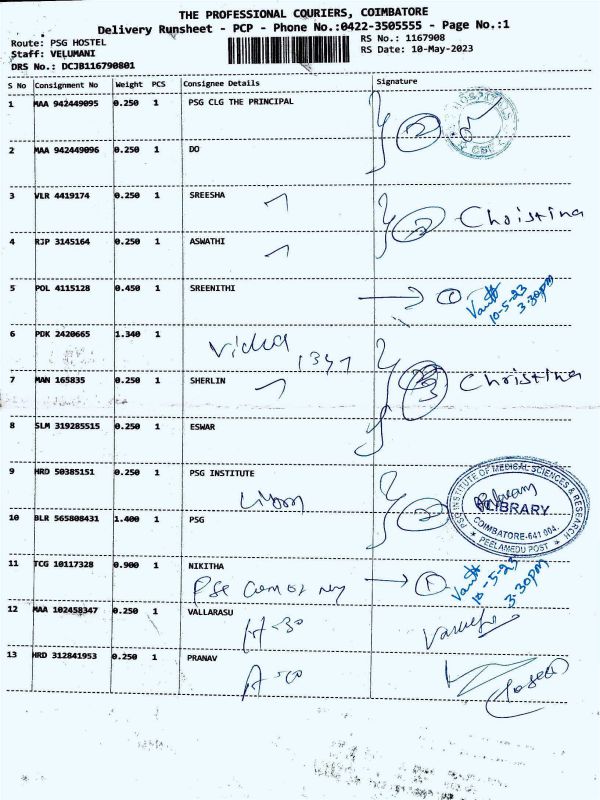 THE PROFESSIONAL COURIERS, COIMBATORE
Delivery Runsheet - PCP - Phone No.:0422-3505555 - Page No.:1
Route: PSG HOSTEL
RS No.: 1167908
Staff: VELUMANI
RS Date: 10-May-2023
DRS No.: DCJB116790801
S No Consignment No Weight PCS Consignee Details Signature
1 MAA 942449095 0.250 1 PSG CLG THE PRINCIPAL
2
2 MAA 942449096 0.250 1 DO
3 VLR 4419174 0.250 1 SREESHA
2 Christina
4 RJP 3145164 0.250 1 ASWATHI
5 POL 4115128 0.450 1 SREENITHI
1
10-5-23
3.30pm
6 PDK 2420665 1.340 1
3 Christina
7 MAN 165835 0.250 1 SHERLIN
8 SLM 319285515 0.250 1 ESWAR
9 HRD 50385151 0.250 1 PSG INSTITUTE
2
PSG INSTITUTE OF MEDICAL SCIENCES & RESEARCH
LIBRARY
COIMBATORE-641 004.
PEELAMEDU POST
10 BLR 565808431 1.400 1 PSG
11 TCG 10117328 0.900 1 NIKITHA
1
10-5-23
3.30pm
12 MAA 102458347 0.250 1 VALLARASU
13 HRD 312841953 0.250 1 PRANAV